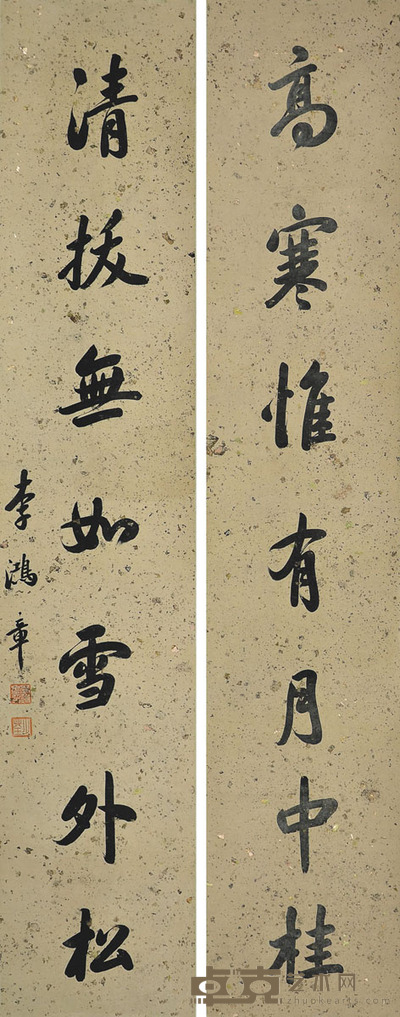 高寒惟有月中桂
清拔無如雪外松
李鴻章
卓克艺术网
zhuokearts.com